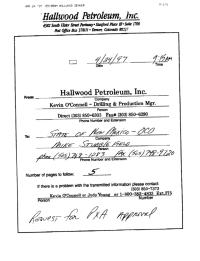 Hallwood Petroleum, Inc.
4582 South Ulster Street Parkway • Stanford Place III • Suite 1700
Post Office Box 378111 • Denver, Colorado 80237
9/04/97
Date
Time
From
Hallwood Petroleum, Inc.
Company
Kevin O'Connell - Drilling & Production Mgr.
Person
Direct (303) 850-6303 Fax# (303) 850-6290
Phone Number and Extension
To:
STATE OF New Mexico - OCD
Company
MIKE STUBBLEFIELD
Person
Phone Number and Extension
Number of pages to follow: 5
If there is a problem with the transmitted information please contact
(303) 850-7373
Kevin O'Connell or Jody Young or 1-800-382-4832 Ext.
Person
Number
REQUEST for P&A Approval